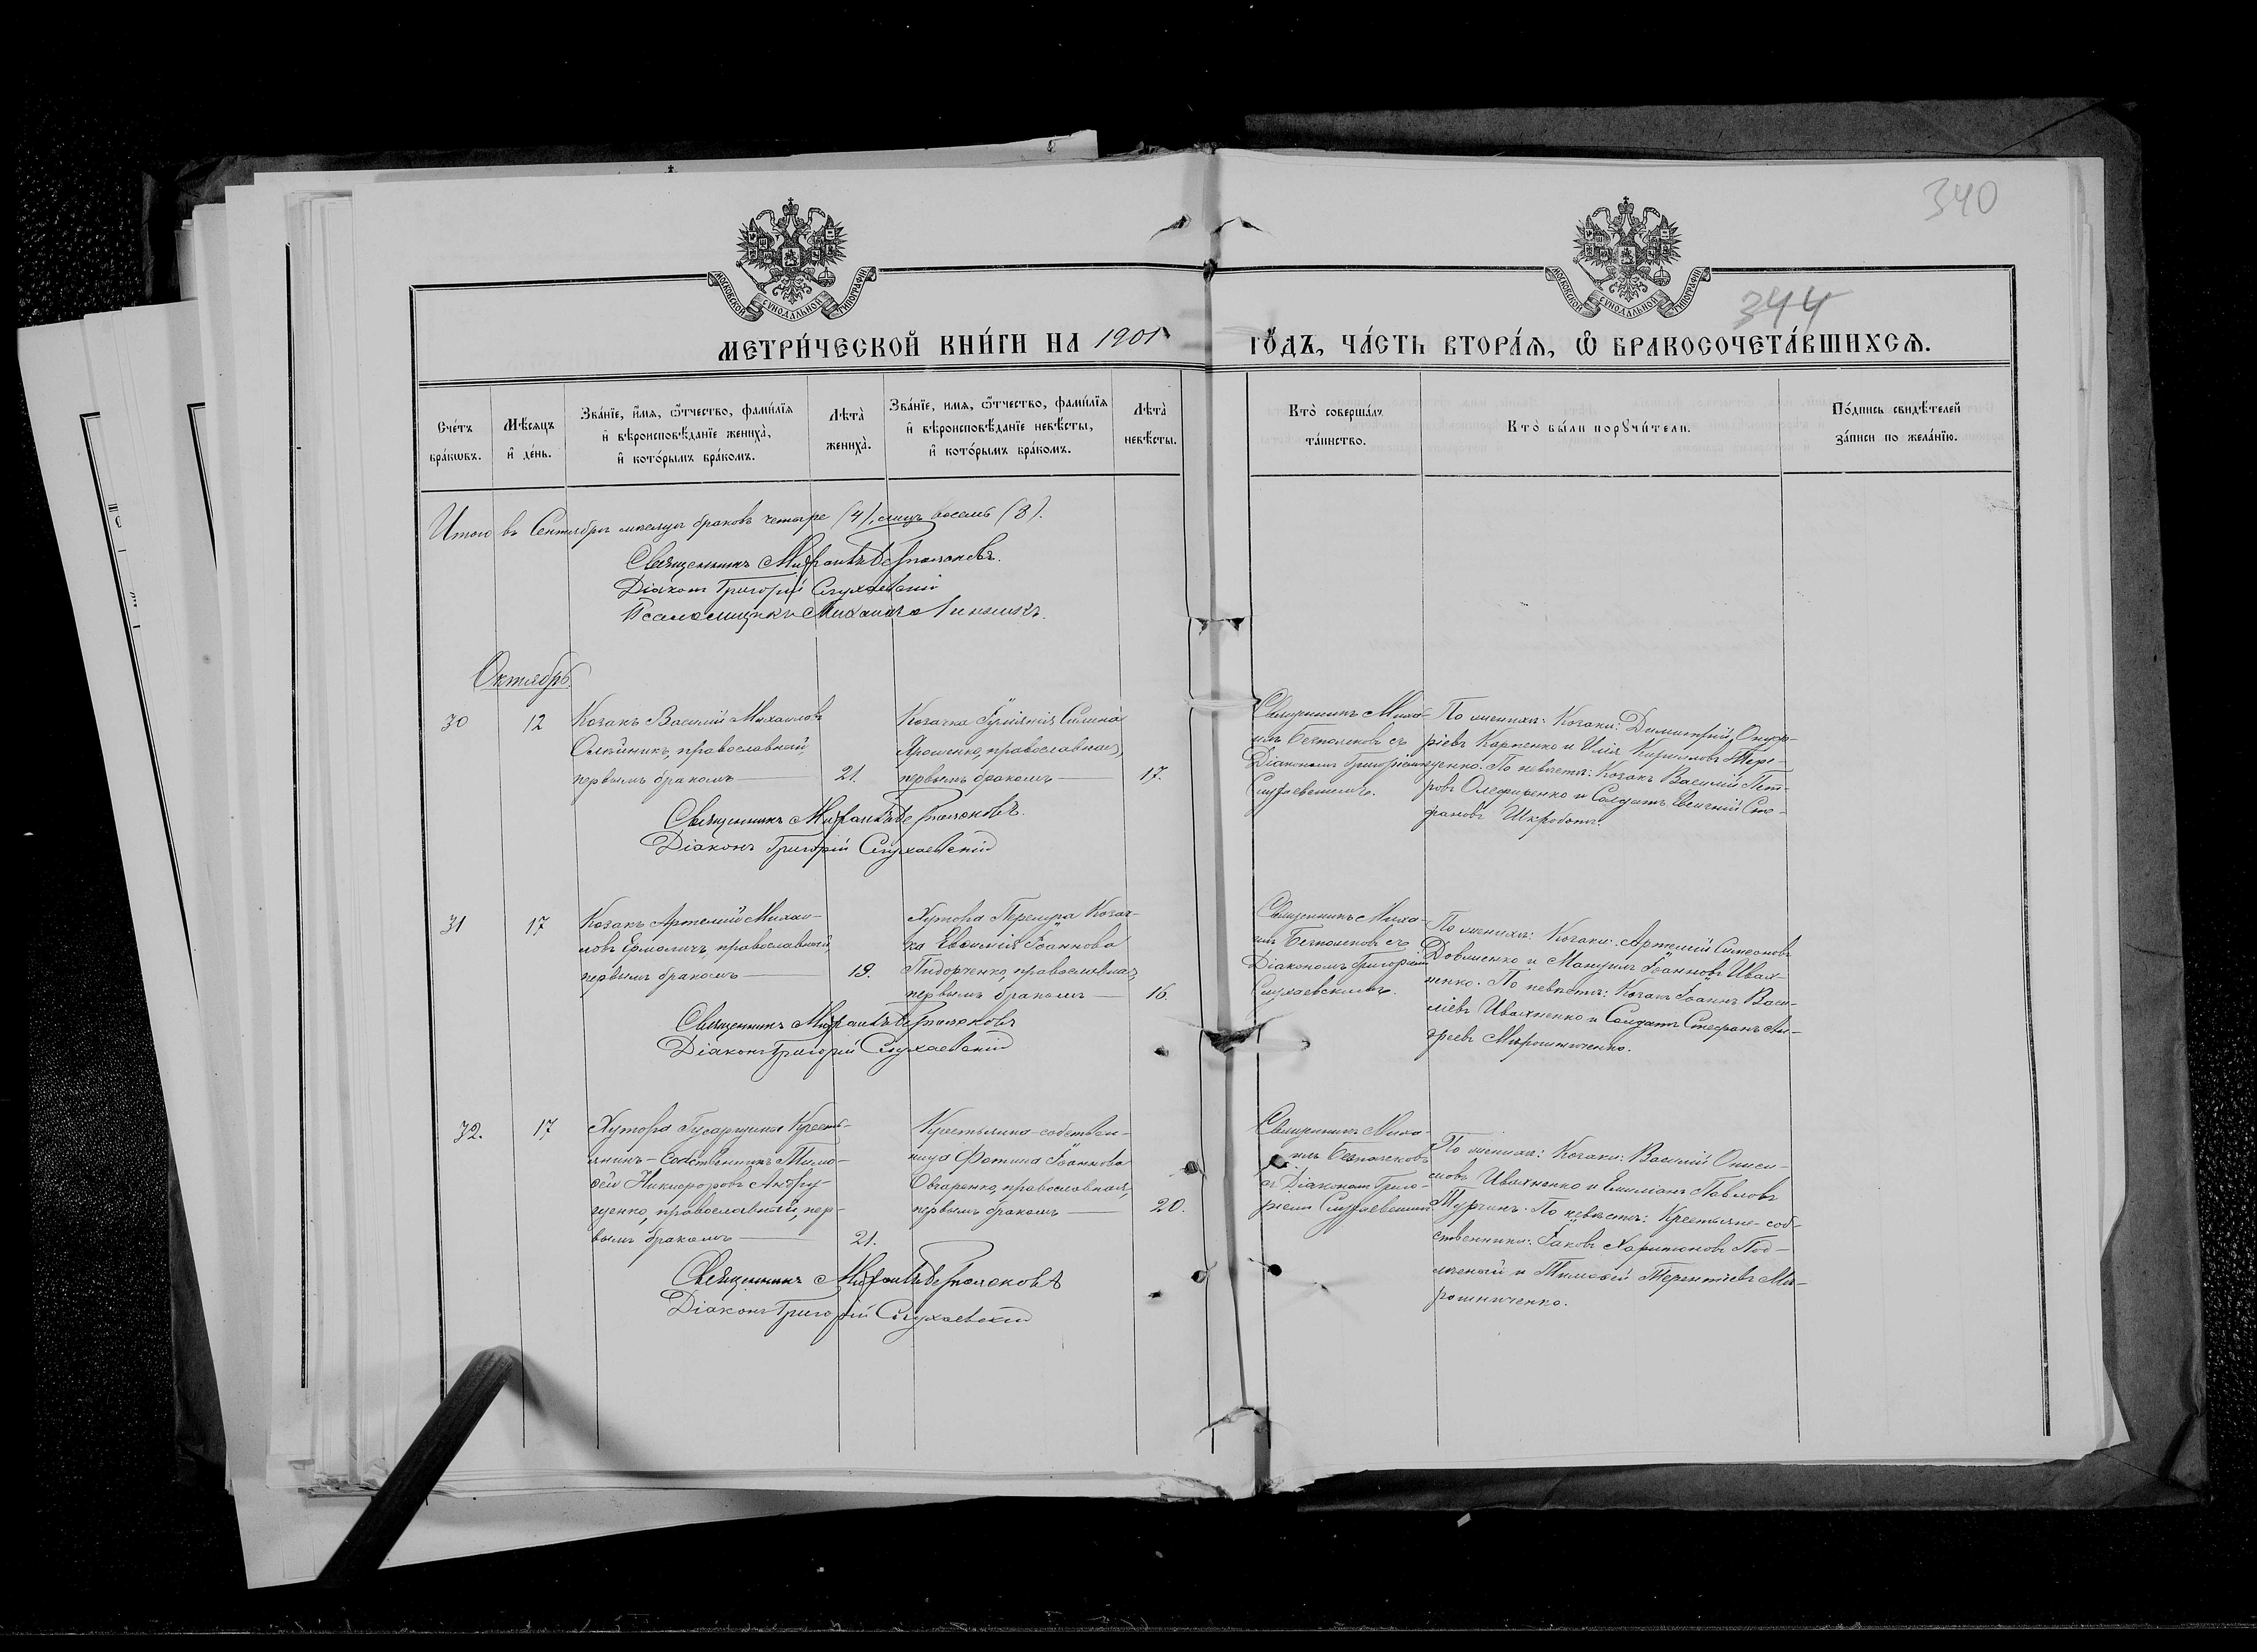 340
344
МОСКОВСКОЙ СѴНОДАЛЬНОЙ ТИПОГРАФІИ
МОСКОВСКОЙ СѴНОДАЛЬНОЙ ТИПОГРАФІИ
МЕТРИ́ЧЕСКОЙ КНИ́ГИ НА 1901 ГО́ДЪ, ЧА́СТЬ ВТОРА́Ѧ, Ѡ БРАКОСОЧЕТА́ВШИХСѦ.
Сче́тъ
бра́кѡвъ.
Мѣ́сѧцъ
и҆ де́нь.
Зва́нїе, и҆́мѧ, ѻ҆́тчество, фами́лїѧ
и҆ вѣроисповѣ́данїе жениха̀,
и҆ кото́рымъ бра́комъ.
Лѣта̀
жениха̀.
Зва́нїе, и҆мѧ, ѻ҆́тчество, фами́лїѧ
и҆ вѣроисповѣ́данїе невѣ́сты,
и҆ кото́рымъ бра́комъ.
Лѣта̀
невѣ́сты.
Кто̀ соверша́лъ
та́инство.
Кто̀ бы́ли порꙋчи́тели.
По́дпись свидѣ́телей
за́писи по жела́нїю.
Итого въ Сентябрѣ мѣсяцѣ браковъ четыре (4), лицъ восемь (8).
Священникъ Михаилъ
Діаконъ Григорій Слухаевскій
Псаломщикъ Михаилъ
Октябрь.
30
12
Козакъ Василій Михаиловъ
Олѣйникъ, православный,
первымъ бракомъ
21.
Козачка Іуліанія Симеона
Ярошенко, православная,
первымъ бракомъ
17.
Священникъ Миха-
илъ Безполсковъ съ
Діакономъ Григоріемъ
Слухаевскимъ.
По женихѣ: Козаки: Димитрій Онуф-
ріевъ Карпенко и Илія Кирилловъ Тере-
щенко. По невѣстѣ: Козакъ Василій Пет-
ровъ Олефиренко и Солдатъ Евгеній Сте-
фановъ Шкроботъ.
Священникъ Михаилъ
Діаконъ Григорій Слухаевскій
31
17
Козакъ Артемій Михаи-
ловъ Ермоличъ, православный,
первымъ бракомъ
19.
Хутора Козач-
ка Евѳимія Іоаннова
Пидорченко, православная,
первымъ бракомъ
16.
Священникъ Миха-
илъ Безполсковъ съ
Діакономъ Григоріемъ
Слухаевскимъ.
По женихѣ: Козаки: Артемій Симеоновъ
Довженко и Мануилъ Іоанновъ Ивах-
ненко. По невѣстѣ: Козакъ Іоаннъ Васи-
ліевъ Ивахненко и Солдатъ Стефанъ Ан-
дреевъ Мирошниченко.
Священникъ Михаилъ
Діаконъ Григорій Слухаевскій
32.
17
Хутора Гусарщина Кресть-
янинъ-Собственникъ Тимо-
ѳей Никифоровъ Андру-
щенко, православный, пер-
вымъ бракомъ
21.
Крестьянка-собствен-
ница Фотина Іоаннова
Овчаренко, православная,
первымъ бракомъ
20.
Священникъ Миха-
илъ Безполсковъ
съ Діакономъ Григо-
ріемъ Слухаевскимъ
По женихѣ: Козаки: Василій Ониси-
мовъ Ивахненко и Емиліанъ Павловъ
Турчинъ. По невѣстѣ: Крестьяне-соб-
ственники: Іаковъ Харитоновъ Под-
лѣсный и Тимоѳей Терентіевъ Ми-
рошниченко.
Священникъ Михаилъ
Діаконъ Григорій Слухаевскій